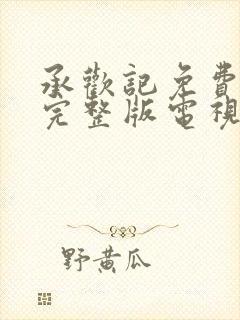 承歡記免費
完整版電視
野黄瓜